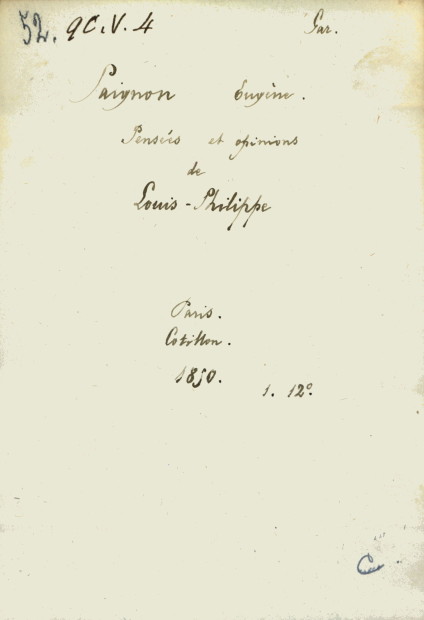 52. 9C.V.4 Gar.
Paignon Eugène.
Pensées et opinions
de
Louis-Philippe
Paris.
Cotillon.
1850.
1. 12º.
C